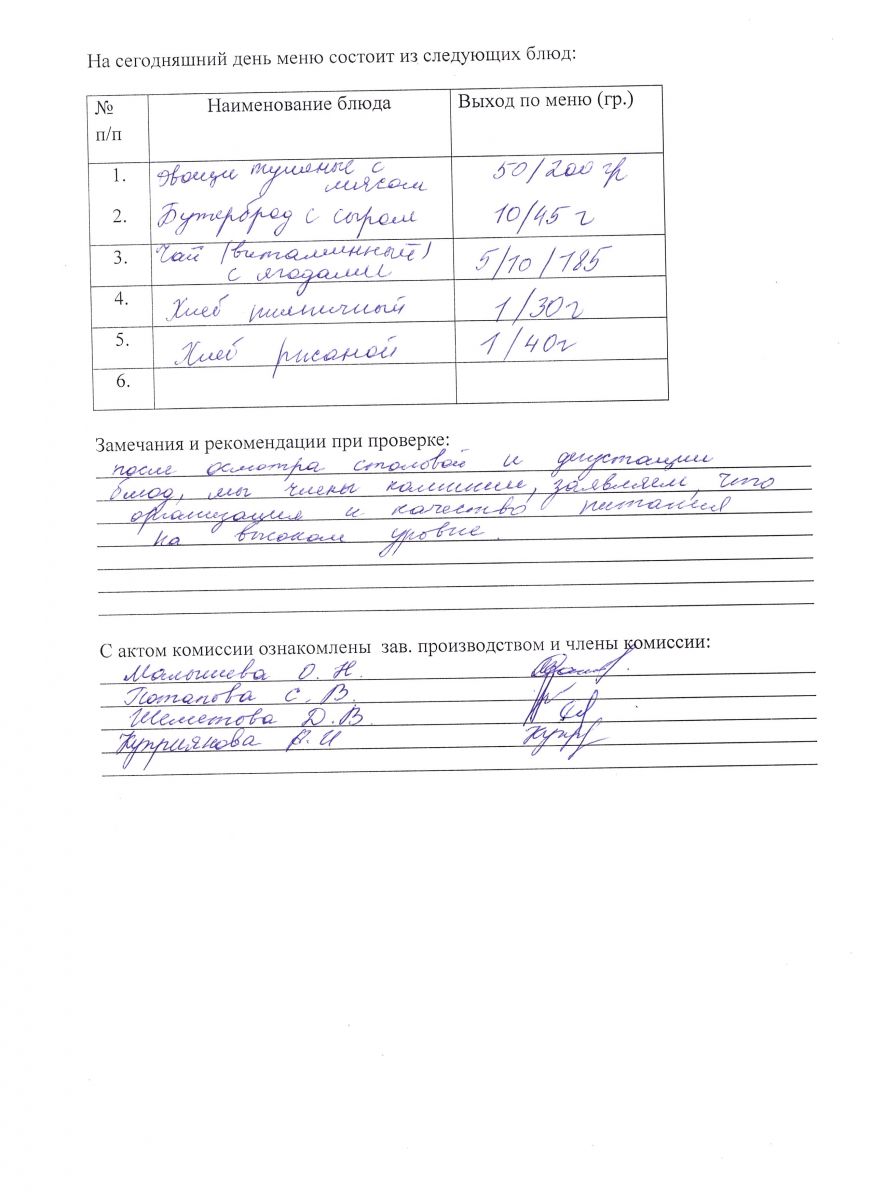 На сегодняшний день меню состоит из следующих блюд:
№ Наименование блюда Выход по меню (гр.)
п/п
1. Овощи тушеные с 50/200 гр
мясом
2. Бутерброд с сыром 10/45 г
3. Чай (витаминный) 5/10/185
с ягодами
4. Хлеб пшеничный 1/30г
5. Хлеб рисаной 1/40г
6.
Замечания и рекомендации при проверке:
после осмотра столовой и дегустации
блюд, мы члены комиссии, заявляем, что
организация и качество питания
на высоком уровне.
С актом комиссии ознакомлены зав. производством и члены комиссии:
Малышева О. Н.
Потапова С. В.
Шеметова Д. В.
Куприянова А. И